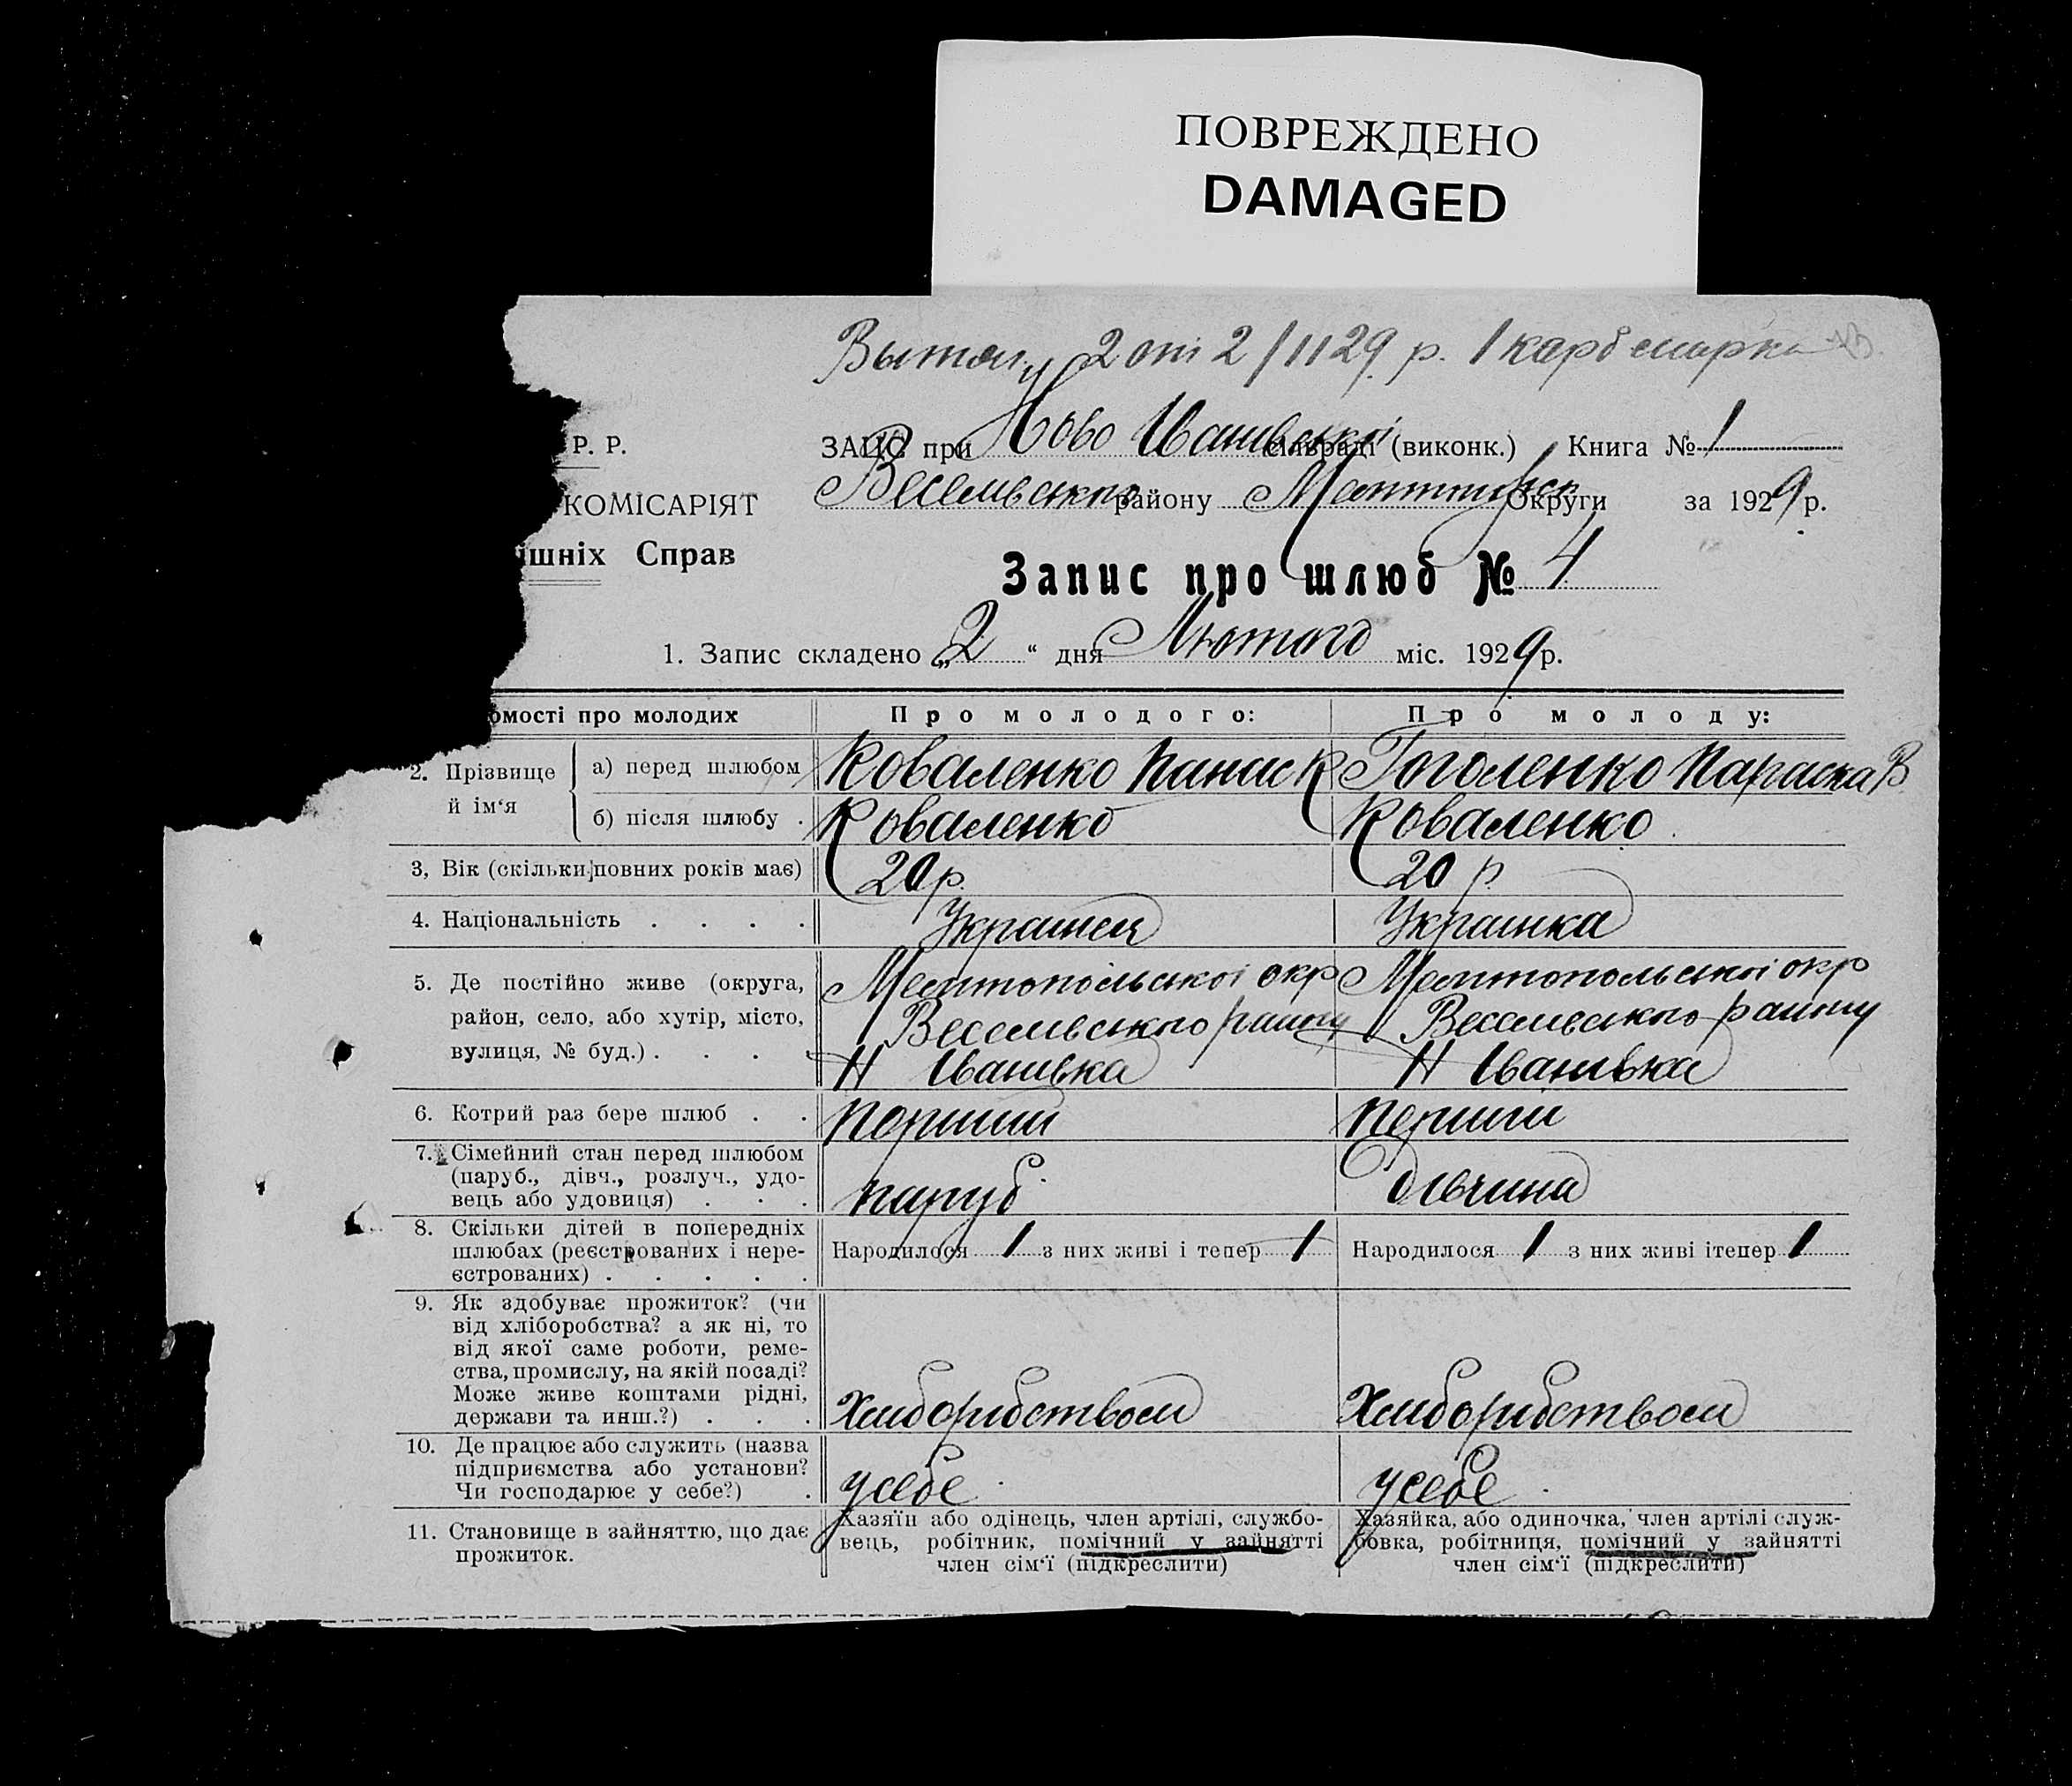 ПОВРЕЖДЕНО
DAMAGED
2 от 2/II 29 р. 1 карб марка
Р. Р.
ЗАЦС при Ново Іванівській сільраді (виконк.) Книга № 1
КОМІСАРІЯТ
Веселівського району Мелітопільськ Округи за 1929 р.
ішніх Справ
Запис про шлюб № 4
1. Запис складено „2“ дня Лютого міс. 1929 р.
омості про молодих Про молодого: Про молоду:
2. Прізвище й ім‘я
а) перед шлюбом Коваленко Панас К Гоголенко Параска В
б) після шлюбу . Коваленко Коваленко
3, Вік (скільки повних років має) 20 р. 20 р
4. Національність . . . . Українец Українка
5. Де постійно живе (округа, Мелітопольської окр Мелітопольської окр
район, село, або хутір, місто, Веселівського району Веселівського району
вулиця, № буд.) . . . . Н Іванівка Н Іванівка
6. Котрий раз бере шлюб . . Перший Перший
7. Сімейний стан перед шлюбом
(паруб., дівч., розлуч., удо-
вець або удовиця) . . . паруб дівчина
8. Скільки дітей в попередніх
шлюбах (реєстрованих і нере- Народилося / з них живі і тепер / Народилося / з них живі ітепер /
єстрованих) . . . . .
9. Як здобуває прожиток? (чи
від хліборобства? а як ні, то
від якої саме роботи, реме-
ства, промислу, на якій посаді?
Може живе коштами рідні,
держави та инш.?) . . . Хліборобством Хліборобством
10. Де працює або служить (назва
підприємства або установи?
Чи господарює у себе?) . усебе усебе
11. Становище в зайняттю, що дає
прожиток.
Хазяїн або одінець, член артілі, службо-
вець, робітник, помічний у зайнятті
член сім‘ї (підкреслити)
Хазяйка, або одиночка, член артілі служ-
бовка, робітниця, помічний у зайнятті
член сім‘ї (підкреслити)